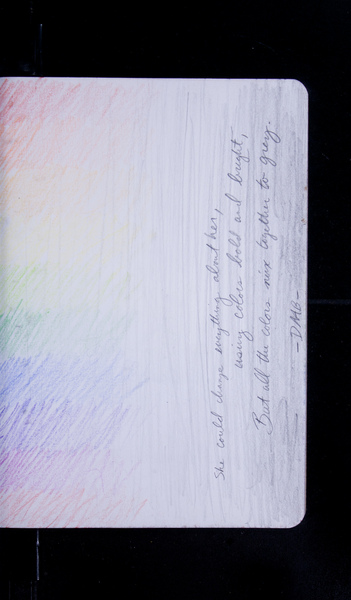 She could change everything about her,
using colors bold and bright,
But all the colors mix together to grey.
-DMB-